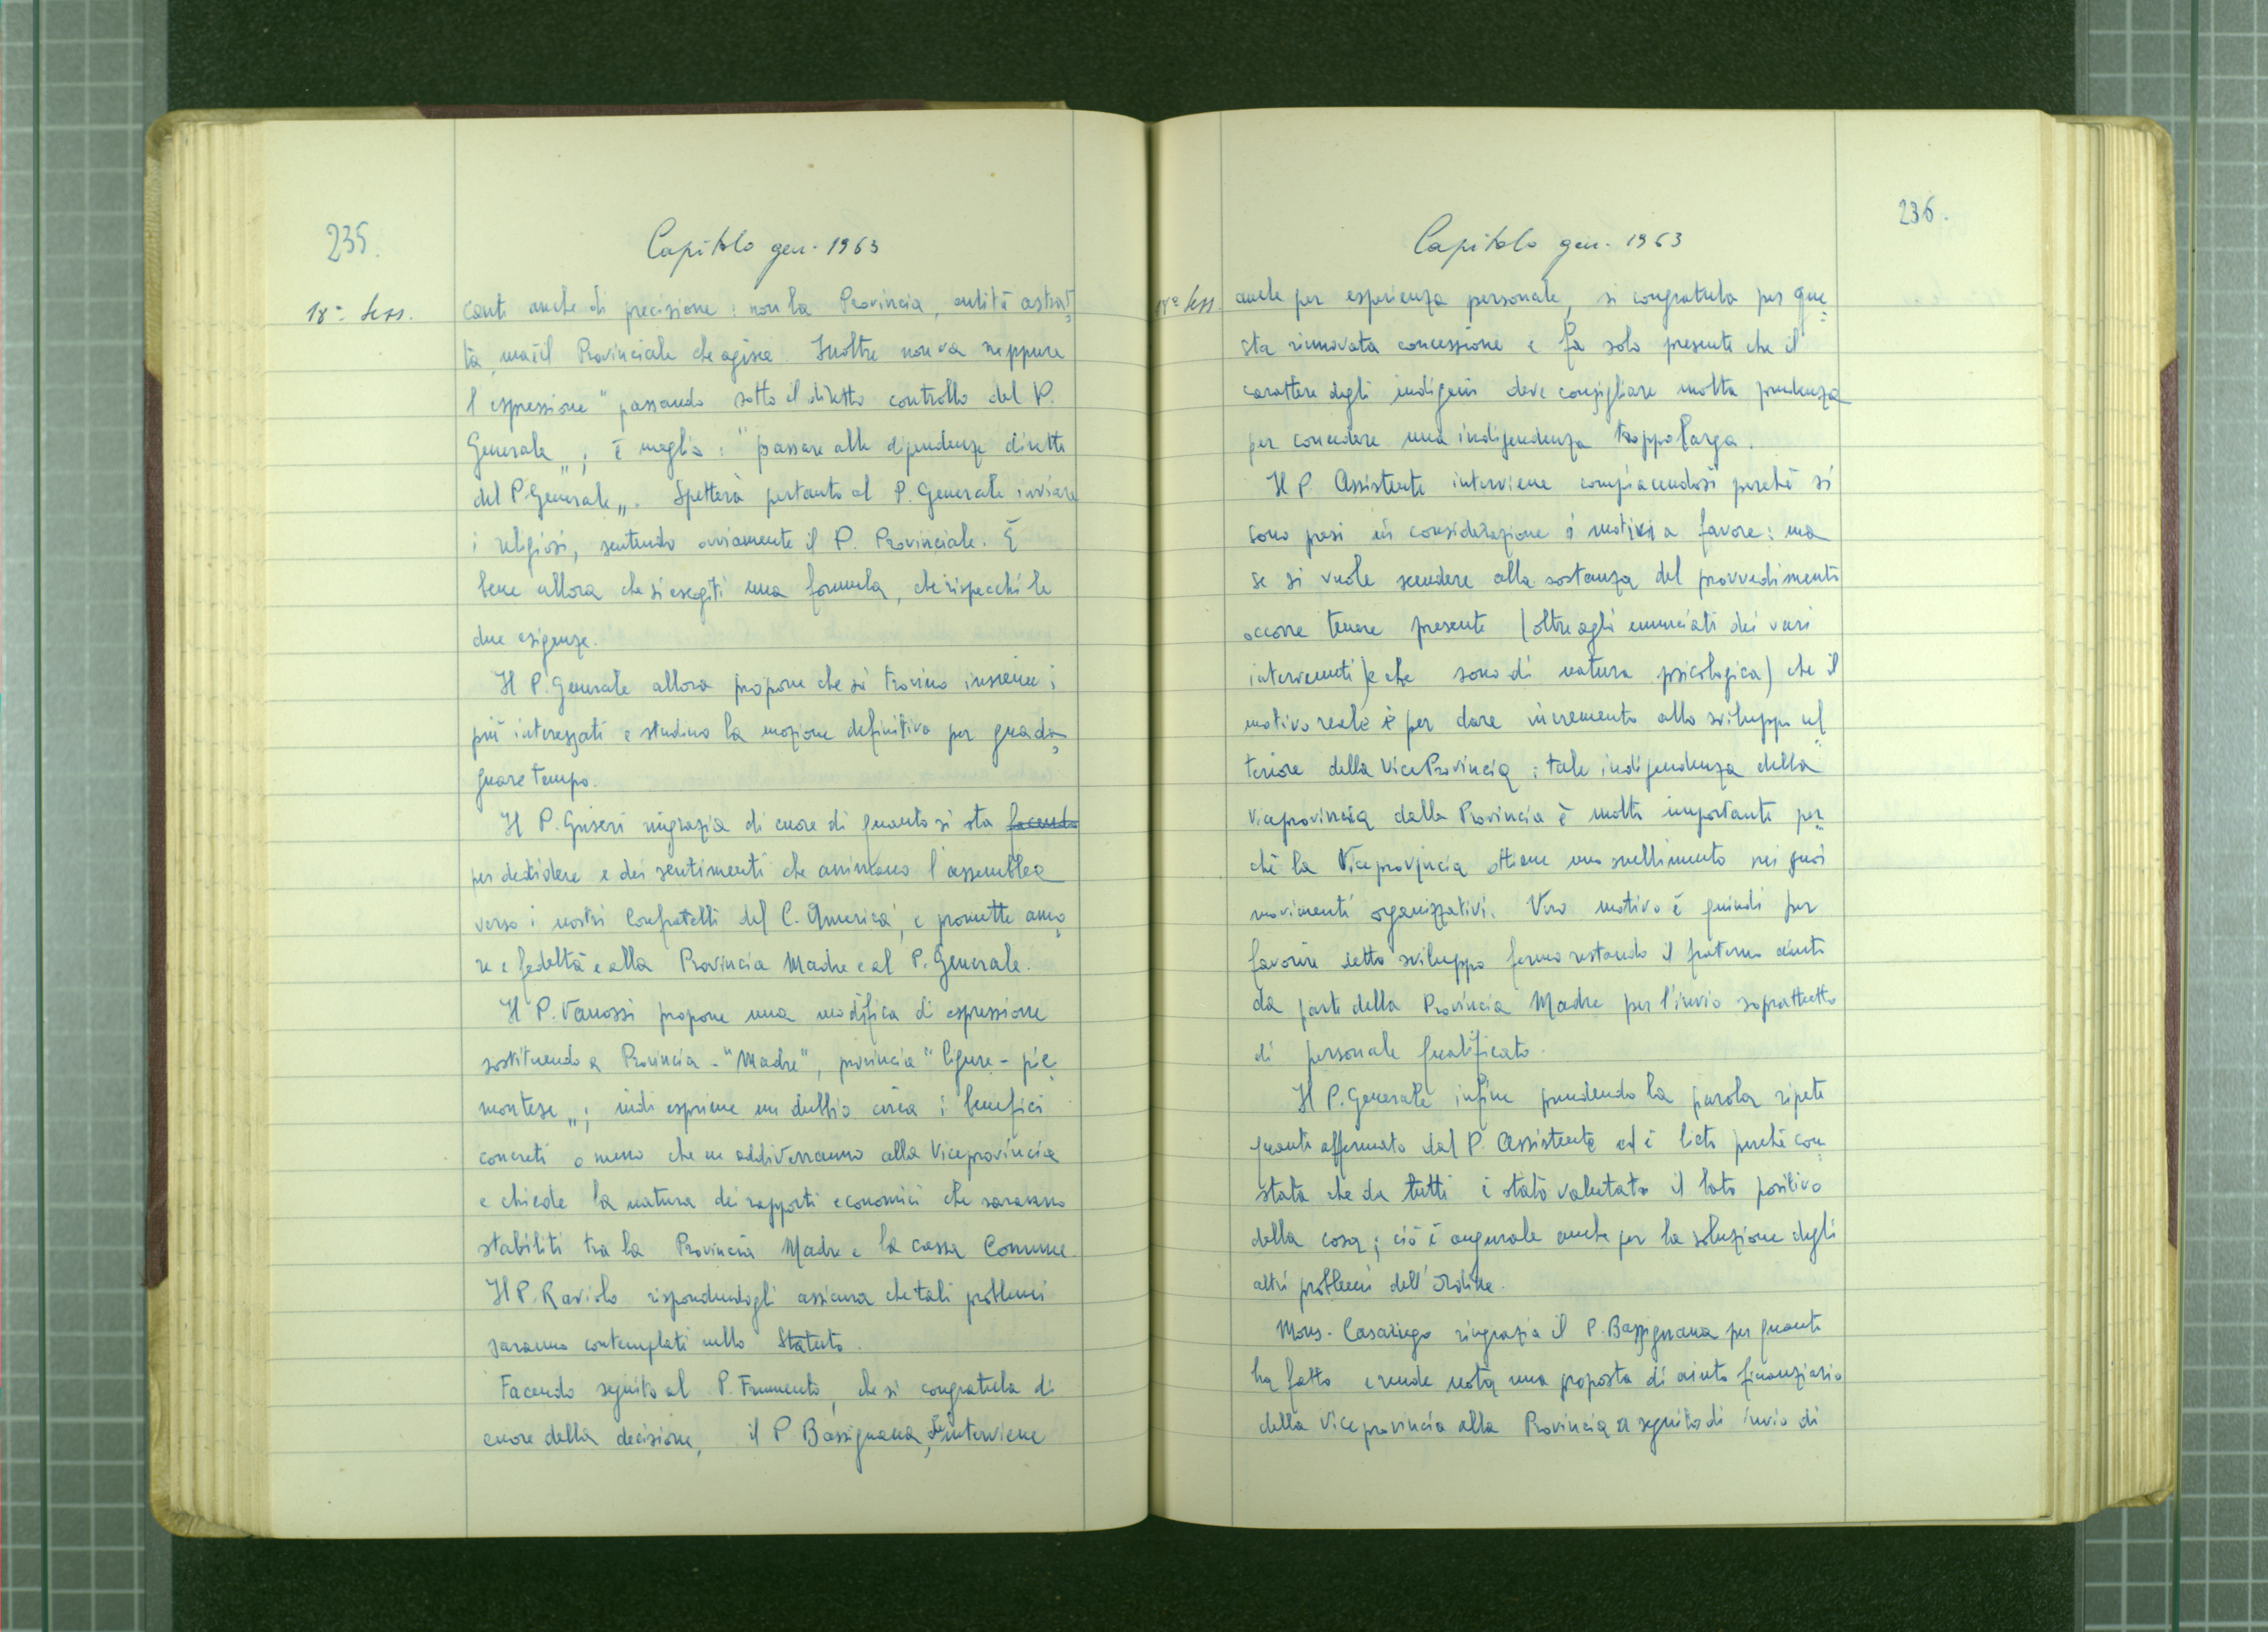 235.
Capitolo gen. 1963
18ª Sess.
canti anche di precisione: non la Provincia, entità astrat=
ta, ma il Provinciale che agisca. Inoltre non va neppure
l'espressione "passando sotto il diretto controllo del P.
Generale„; è meglio: "passare alle dipendenze dirette
del P. Generale„. Spetterà pertanto al P. Generale inviare
i religiosi, sentendo ovviamente il P. Provinciale. È
bene allora che si escogiti una formula, che rispecchi le
due esigenze.
Il P. Generale allora propone che si trovino insieme i
più interessati e studino la mozione definitiva per guada=
gnare tempo.
Il P. Griseri ringrazia di cuore di quanto si sta facendo
per decidere e dei sentimenti che animano l'assemblea
verso i nostri Confratelli del C. America, e promette amo=
re e fedeltà e alla Provincia Madre e al P. Generale.
Il P. Vanossi propone una modifica di espressione
sostituendo a Provincia - "Madre", provincia "ligure - pie=
montese„; indi esprime un dubbio circa i benefici
concreti o meno che ne addiverranno alla Viceprovincia
e chiede la natura dei rapporti economici che saranno
stabiliti tra la Provincia Madre e la cassa Comune.
Il P. Raviolo rispondendogli assicura che tali problemi
saranno contemplati nello Statuto.
Facendo seguito al P. Frumento, che si congratula di
cuore della decisione, il P. Bassignana, interviene
236.
Capitolo gen. 1963
18ª Sess.
anche per esperienza personale, si congratula per que=
sta rinnovata concessione e fa solo presente che il
carattere degli indigeni deve consigliare molta prudenza
per concedere una indipendenza troppo larga.
Il P. Assistente interviene compiacendosi perchè si
sono presi in considerazione i motivi a favore: ma
se si vuole scendere alla sostanza del provvedimento
occorre tenere presente (oltre agli enunciati dei vari
intervenuti) e che sono di natura psicologica) che il
motivo reale è per dare incremento allo sviluppo ul=
teriore della Vice Provincia; tale indipendenza della
viceprovincia dalla Provincia è molto importante per=
chè la Viceprovincia ottiene uno snellimento nei suoi
movimenti organizzativi. Vero motivo è quindi per
favorire detto sviluppo fermo restando il fraterno aiuto
da parte della Provincia Madre per l'invio soprattutto
di personale qualificato.
Il P. Generale infine prendendo la parola ripete
quanto affermato dal P. Assistente ed è lieto perchè con=
stata che da tutti è stato valutato il lato positivo
della cosa; ciò è augurale anche per la soluzione degli
altri problemi dell'Ordine.
Mons. Casariego ringrazia il P. Bassignana per quanto
ha fatto e rende nota una proposta di aiuto finanziario
della Viceprovincia alla Provincia a seguito di invio di